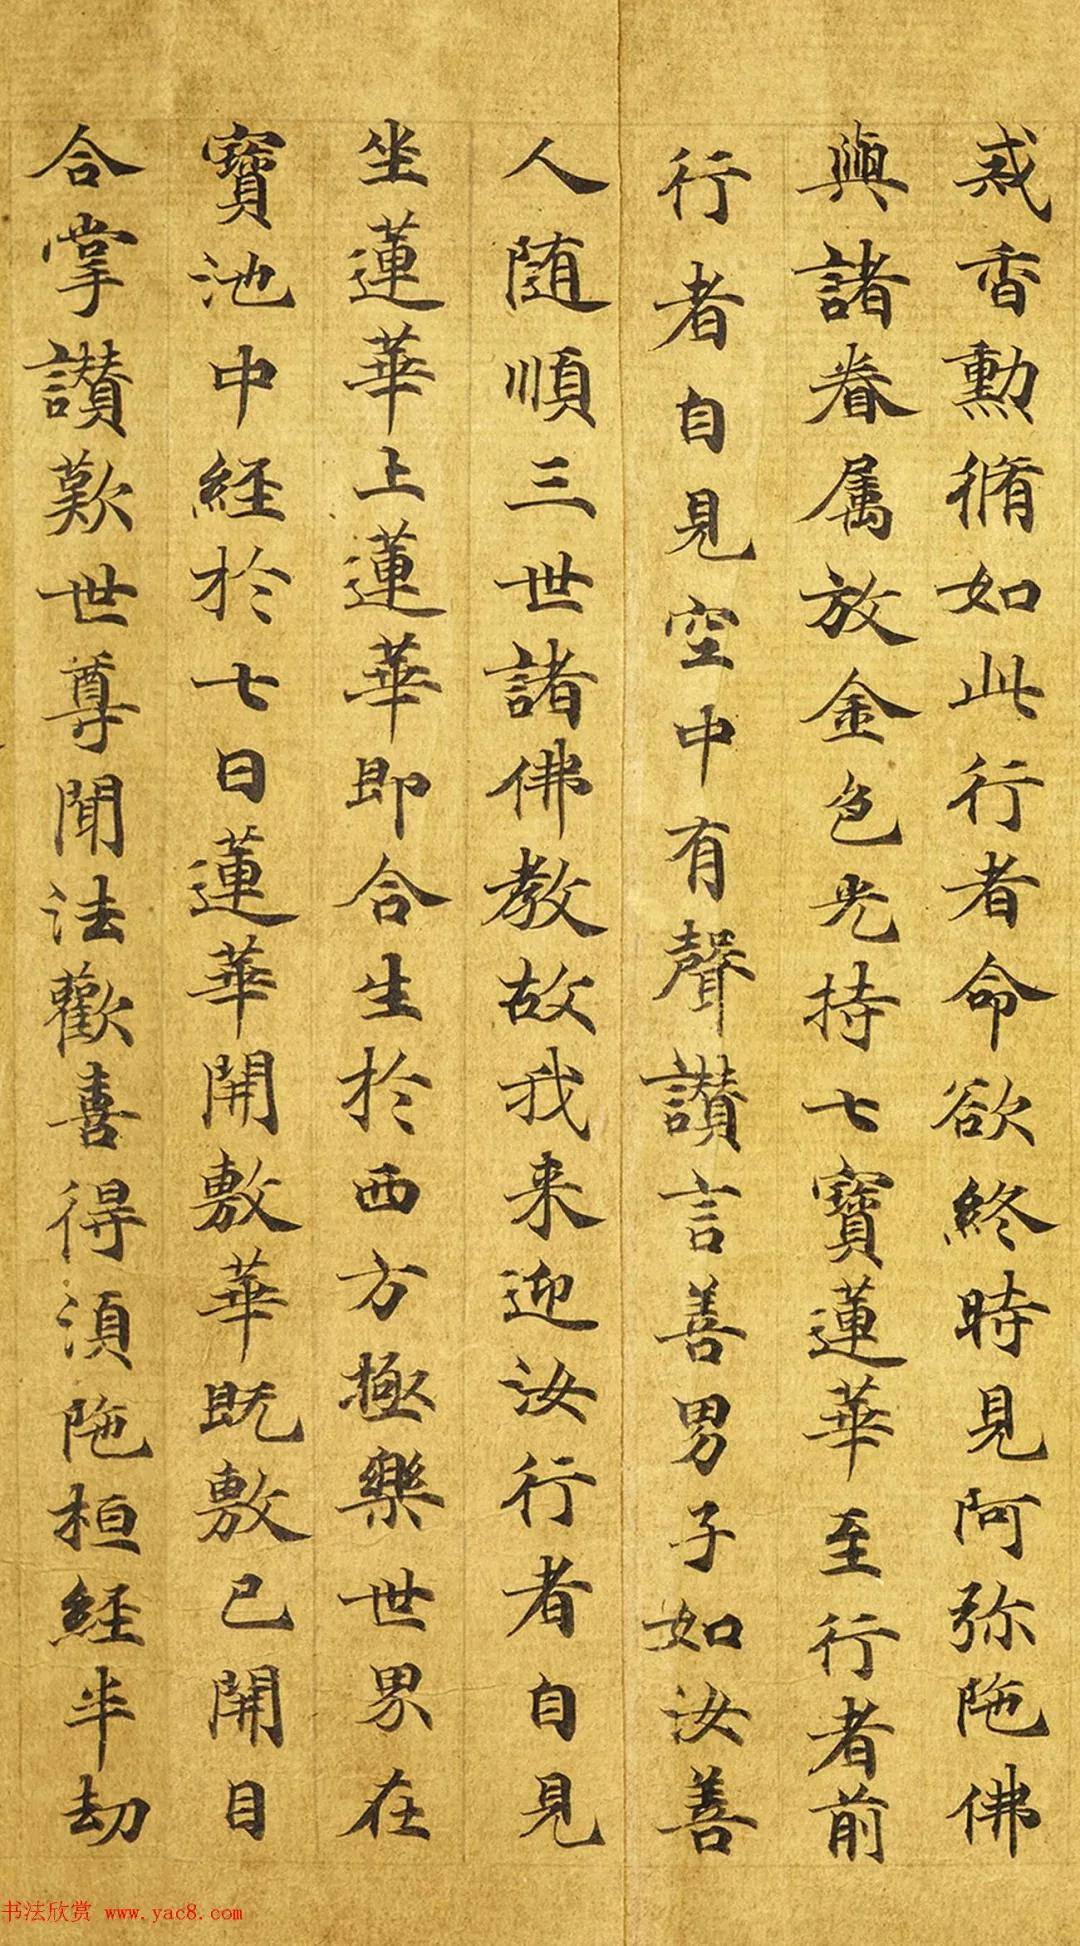 戒香勲脩如此行者命欲終時見阿弥陁佛
與諸眷属放金色光持七寶蓮華至行者前
行者自見空中有聲讃言善男子如汝善
人随順三世諸佛教故我来迎汝行者自見
坐蓮華上蓮華即合生於西方極樂世界在
寶池中経於七日蓮華開敷華既敷已開目
合掌讃歎世尊聞法歡喜得湏陁桓経半劫
书法欣赏 www.yac8.com